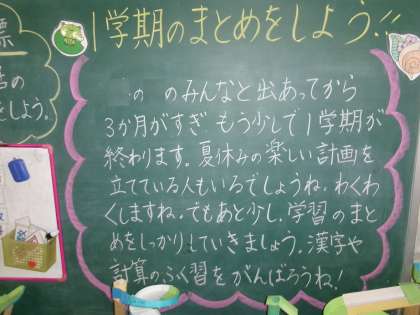 1学期のまとめをしよう!!
標
の
をしよう。
の のみんなと出あってから
3か月がすぎ もう少しで1学期が
終わります。夏休みの楽しい計画を
立てている人もいるでしょうね。わくわ
くしますね。でもあと少し。学習のまと
めをしっかりしていきましょう。漢字や
計算のふく習をがんばろうね!